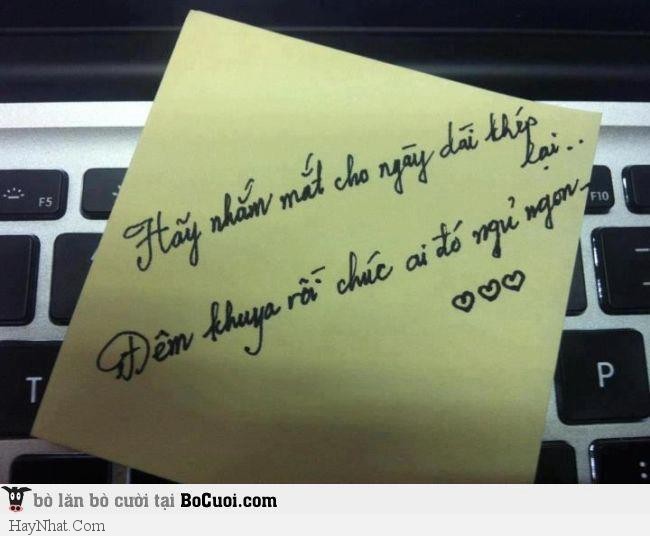 F5
F10
Hãy nhắm mắt cho ngày dài khép
lại..
Đêm khuya rồi chúc ai đó ngủ ngon
T
P
bò lăn bò cười tại BoCuoi.com
HayNhat.Com